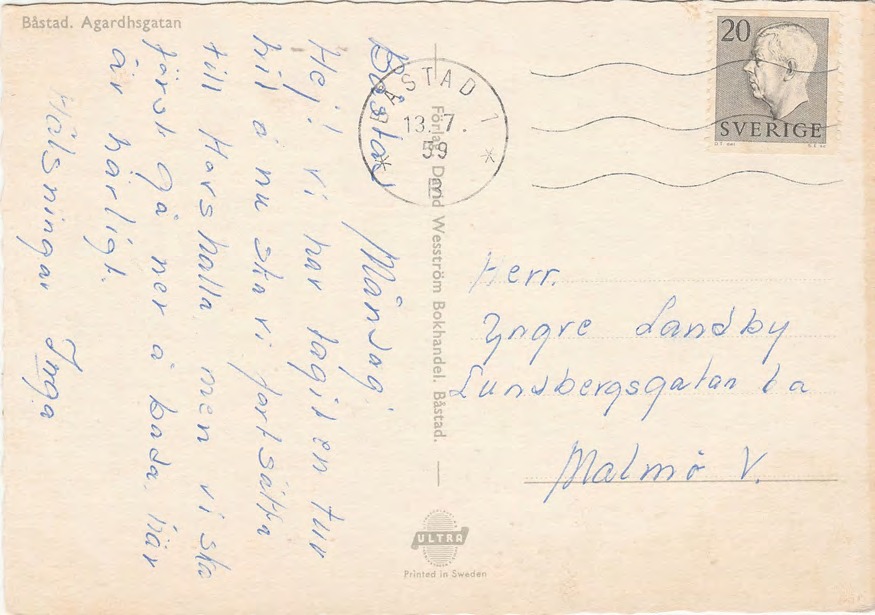 Båstad. Agardhsgatan
Båstad Måndag.
Hej! Vi har tagit en tur
hit å nu ska vi fortsätta
till Hovs hallar men vi ska
först gå ner å bada, här
är härligt.
Hälsningar Inga
BÅSTAD 1
13.7.
59
Förlag David Wesström Bokhandel. Båstad.
ULTRA
Printed in Sweden
20
SVERIGE
Herr.
Yngve Landby
Lundbergsgatan 6a
Malmö V.